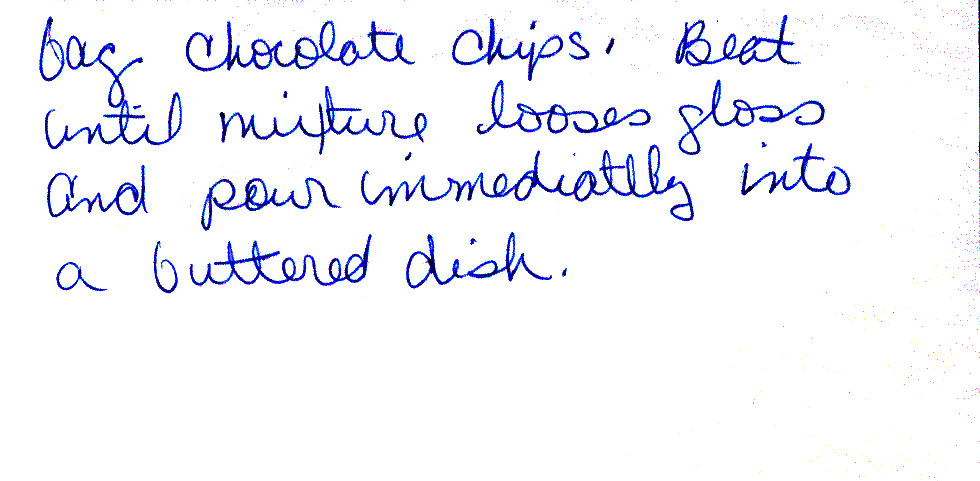 bag chocolate chips. Beat
until mixture looses gloss
and pour immediatlly into
a buttered dish.